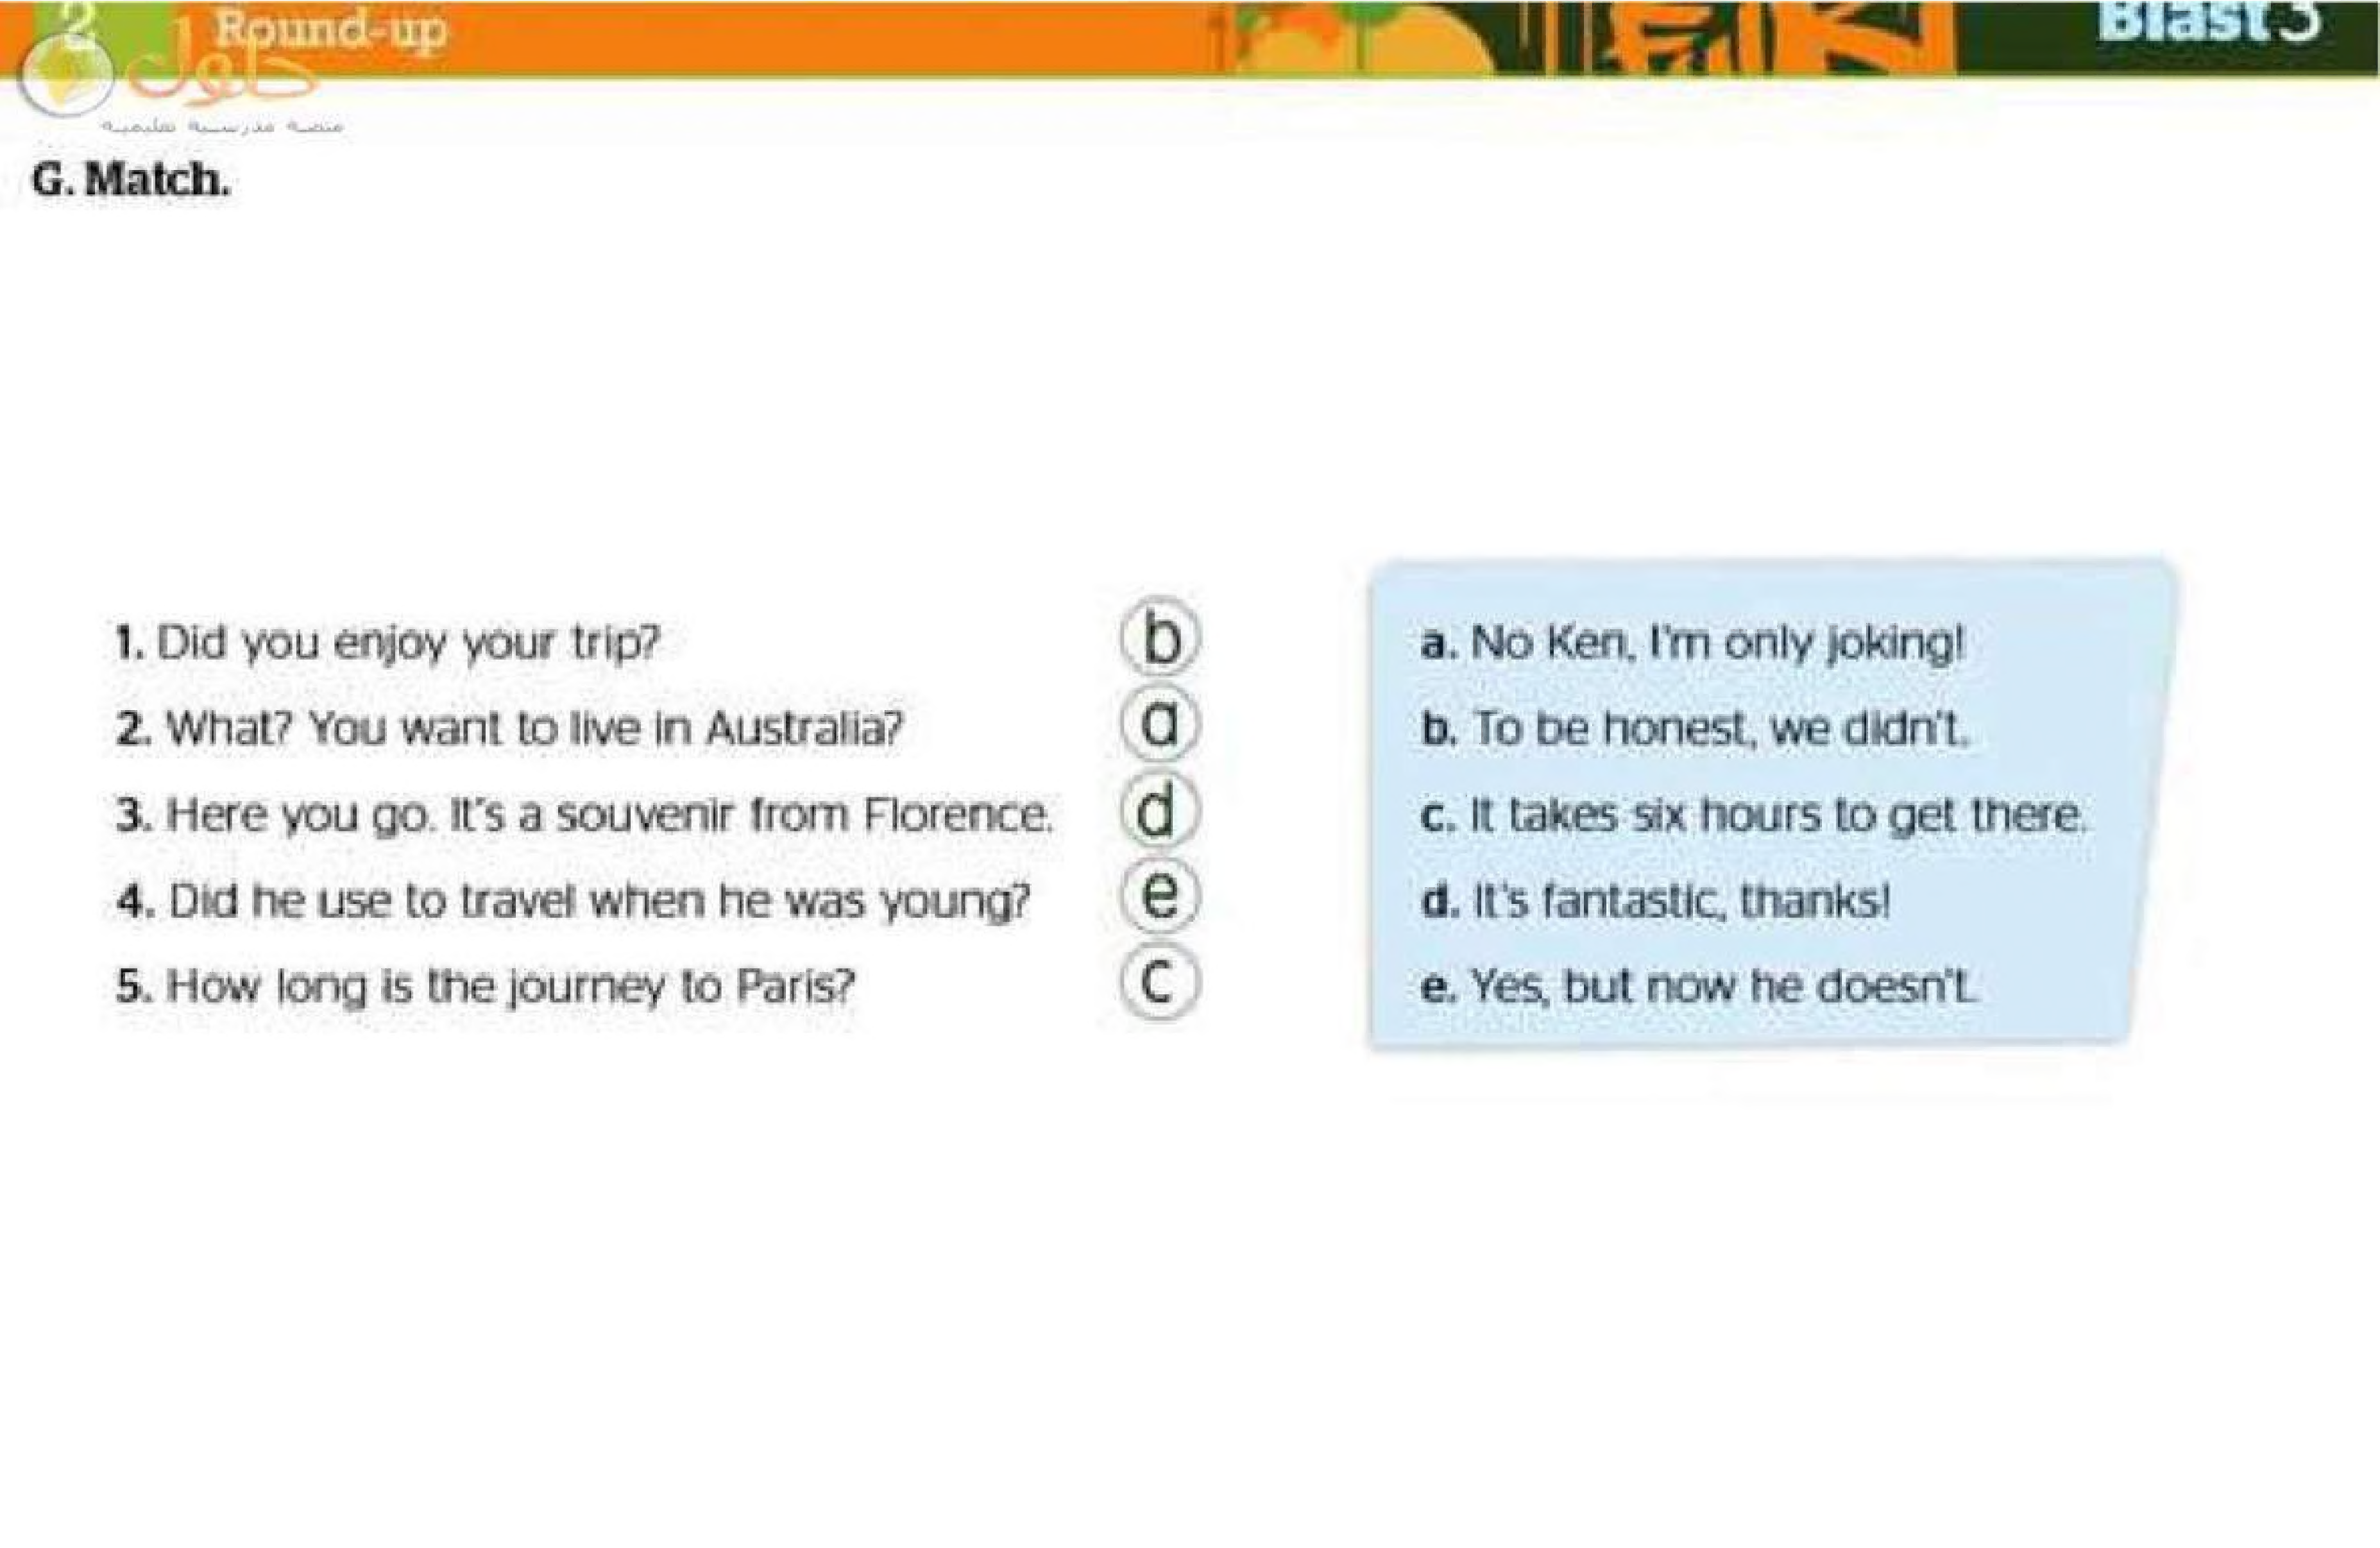 2 Round-up
Blast 3
حلول
منصة مدرسية تعليمية
G. Match.
1. Did you enjoy your trip? b
2. What? You want to live in Australia? a
3. Here you go. It's a souvenir from Florence. d
4. Did he use to travel when he was young? e
5. How long is the journey to Paris? c
a. No Ken, I'm only joking!
b. To be honest, we didn't.
c. It takes six hours to get there.
d. It's fantastic, thanks!
e. Yes, but now he doesn't.